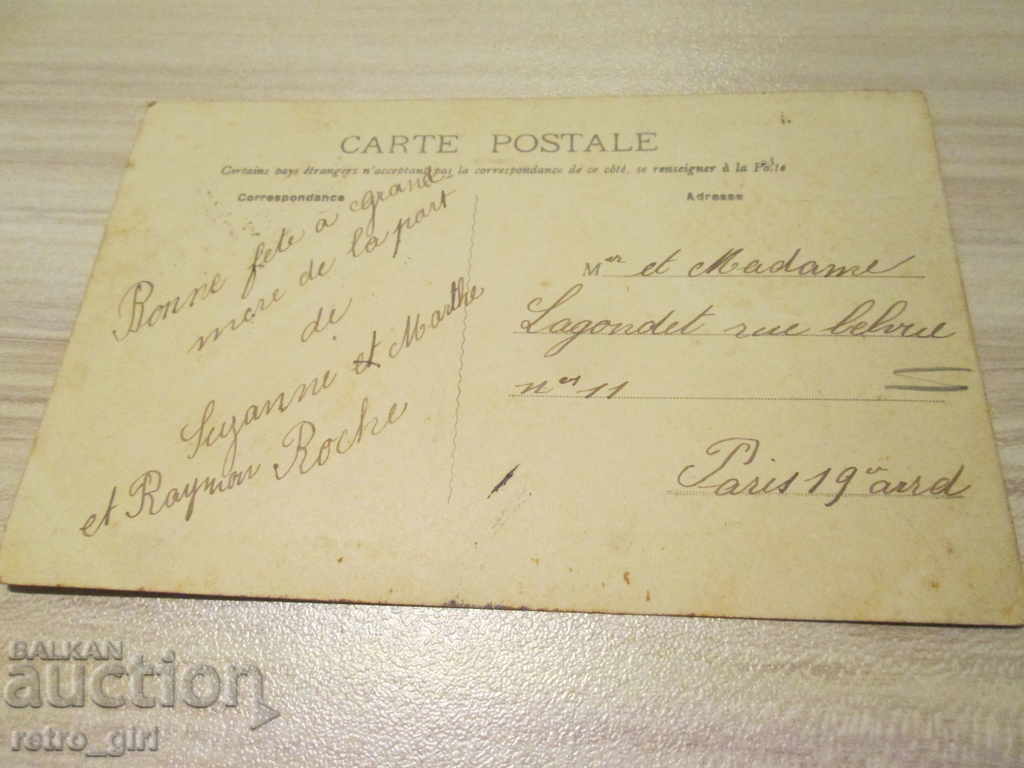 CARTE POSTALE
Certains pays étrangers n'acceptant pas la correspondance de ce côté, se renseigner à la Poste
Correspondance
Bonne fete a grand
mere de la part
de
Suzanne et Marthe
et Raymon Roche
Adresse
Mer et Madame
Lagondet rue
ner 11
Paris 19e arrd
BALKAN
auction
retro_girl